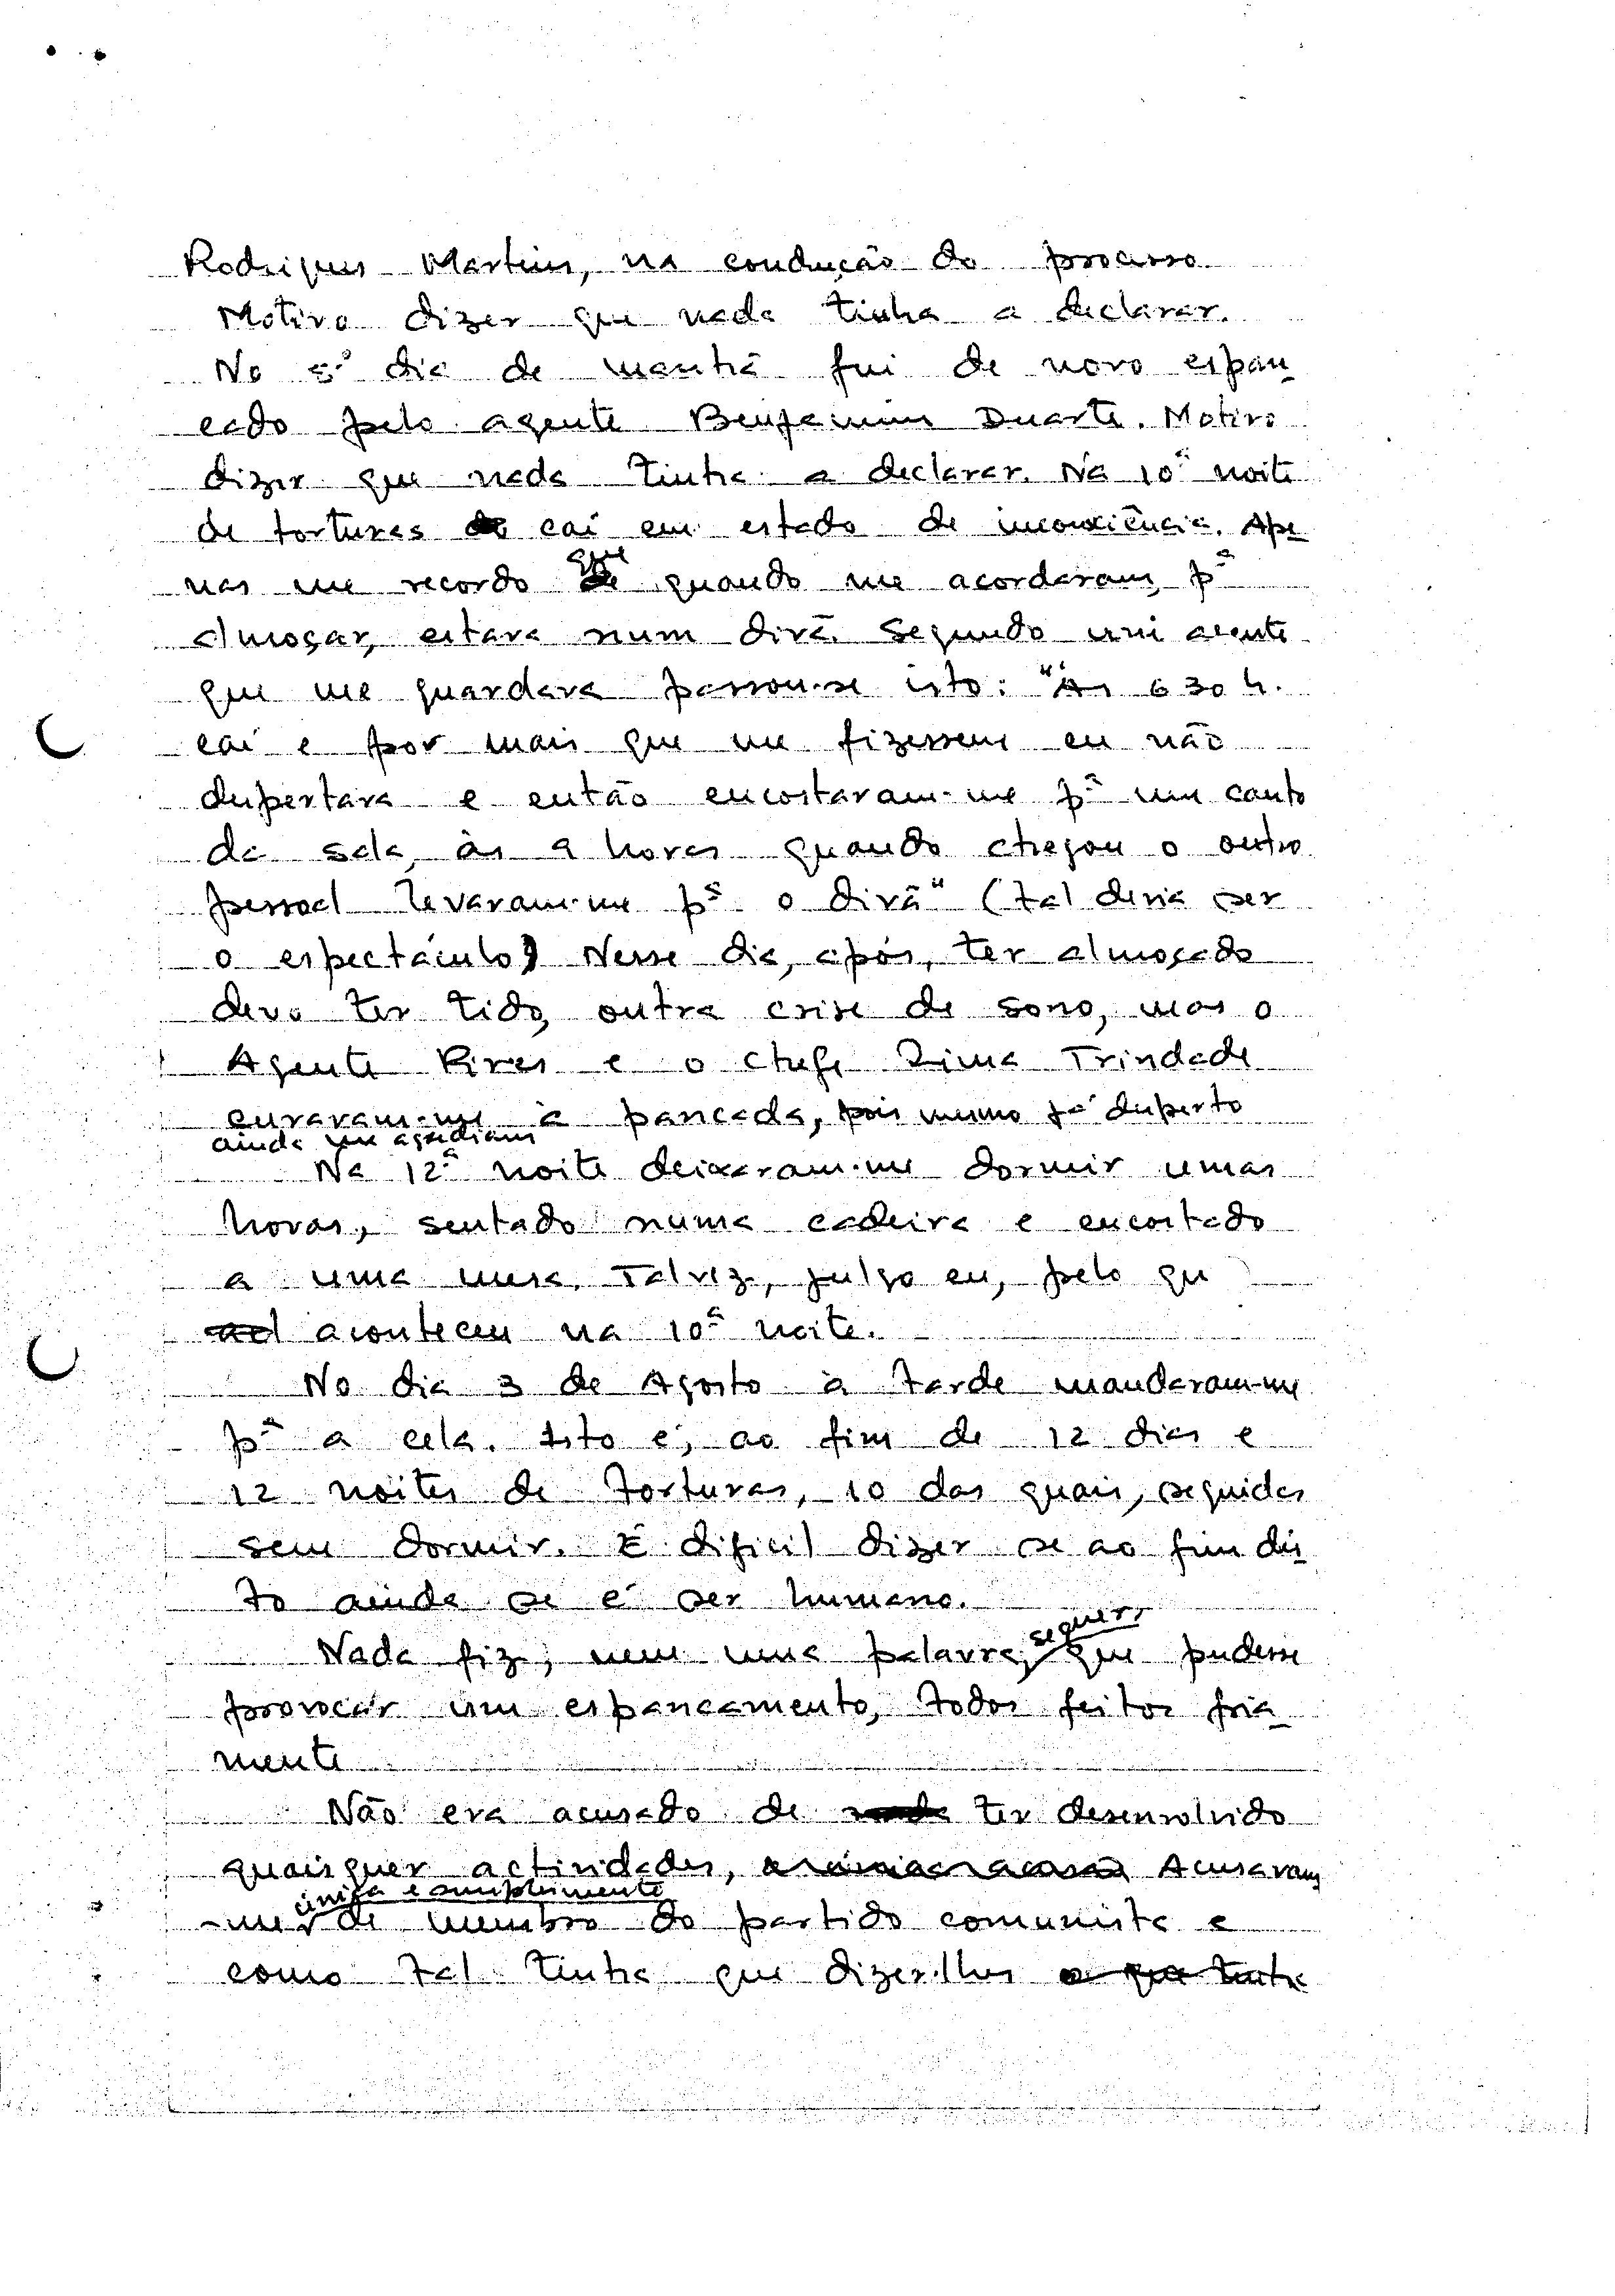 Rodrigues Martins, na condução do processo
Motivo dizer que nada tinha a declarar.
No 5º dia de manhã fui de novo espan
cado pelo agente Benjamim Duarte. Motivo
dizer que nada tinha a declarar. Na 10ª noite
de torturas caí em estado de inconsciência. Ape
nas me recordo que quando me acordaram, pª
almoçar, estava num divã. Segundo um agente
que me guardava passou-se isto: "Às 6 30 h.
caí e por mais que me fizessem eu não
despertava e então encostaram-me pª um canto
da sala, às 9 horas quando chegou o outro
pessoal levaram-me pª o divã" (tal devia ser
o espectáculo) Nesse dia, após, ter almoçado
devo ter tido, outra crise de sono, mas o
Agente Pires e o chefe Lima Trindade
curaram-me à pancada, pois mesmo já desperto
ainda me agrediam
Na 12ª noite deixaram-me dormir umas
horas, sentado numa cadeira e encostado
a uma mesa. Talvez, julgo eu, pelo que
aconteceu na 10ª noite.
No dia 3 de Agosto à tarde mandaram-me
pª a cela. Isto é, ao fim de 12 dias e
12 noites de torturas, 10 das quais, seguidas
sem dormir. É dificil dizer se ao fim dis
to ainda se é ser humano.
Nada fiz, nem uma palavra, sequer, que pudesse
provocar um espancamento, todos feitos fria
mente
Não era acusado de nada ter desenvolvido
quaisquer actividades, Acusaram
única e simplesmente
-me de membro do partido comunista e
como tal tinha que dizer-lhes o que tinha